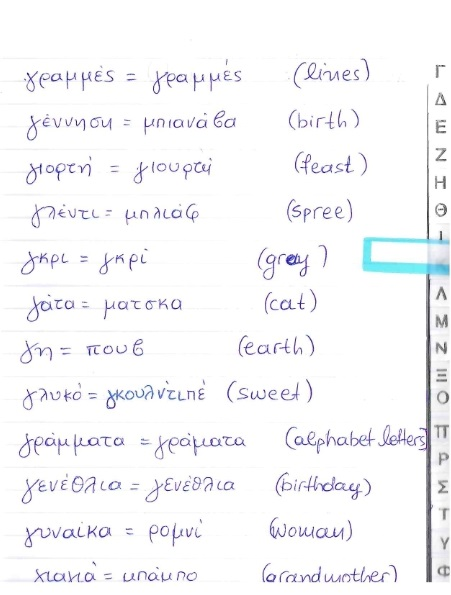 γραμμές = γραμμές (lines)
γέννηση = μπιανάβα (birth)
γιορτή = γιουρτή (feast)
γλέντι = μπλιάφ (spree)
γκρι = γκρί (grey)
γάτα = ματσκα (cat)
γη = πουβ (earth)
γλυκό = γκουλντιπέ (sweet)
γράμματα = γράματα (alphabet letters)
γενέθλια = γενέθλια (birthday)
γυναίκα = ρομνί (woman)
γιαγιά = μπάμπο (grandmother)
Γ
Δ
Ε
Ζ
Η
Θ
Ι
Λ
Μ
Ν
Ξ
Ο
Π
Ρ
Σ
Τ
Υ
Φ